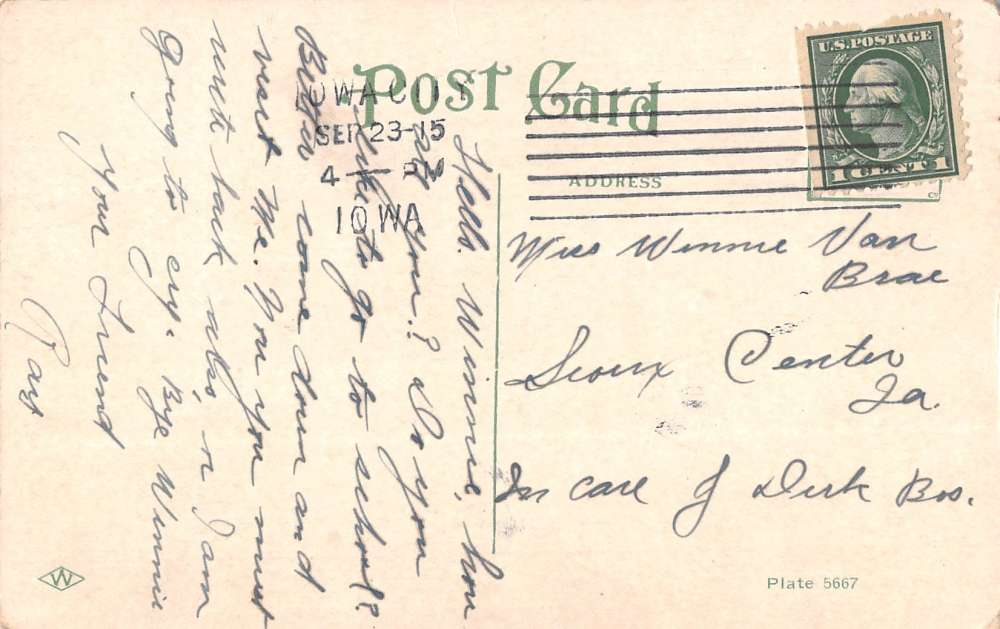 Post Card
IOWA CITY
SEP 23-15
4 - PM
IOWA
U.S. POSTAGE
1 CENT 1
ADDRESS
Miss Winnie Van
Brae
Sioux Center
Ia.
In care of Dirk Bos.
Hello. Winnie, how
are you? Do you
like to go to school?
Better come down and
visit me. You you must
write back also, n I am
going to cry. Bye Winnie
Your Friend
Ray
W
Plate 5667